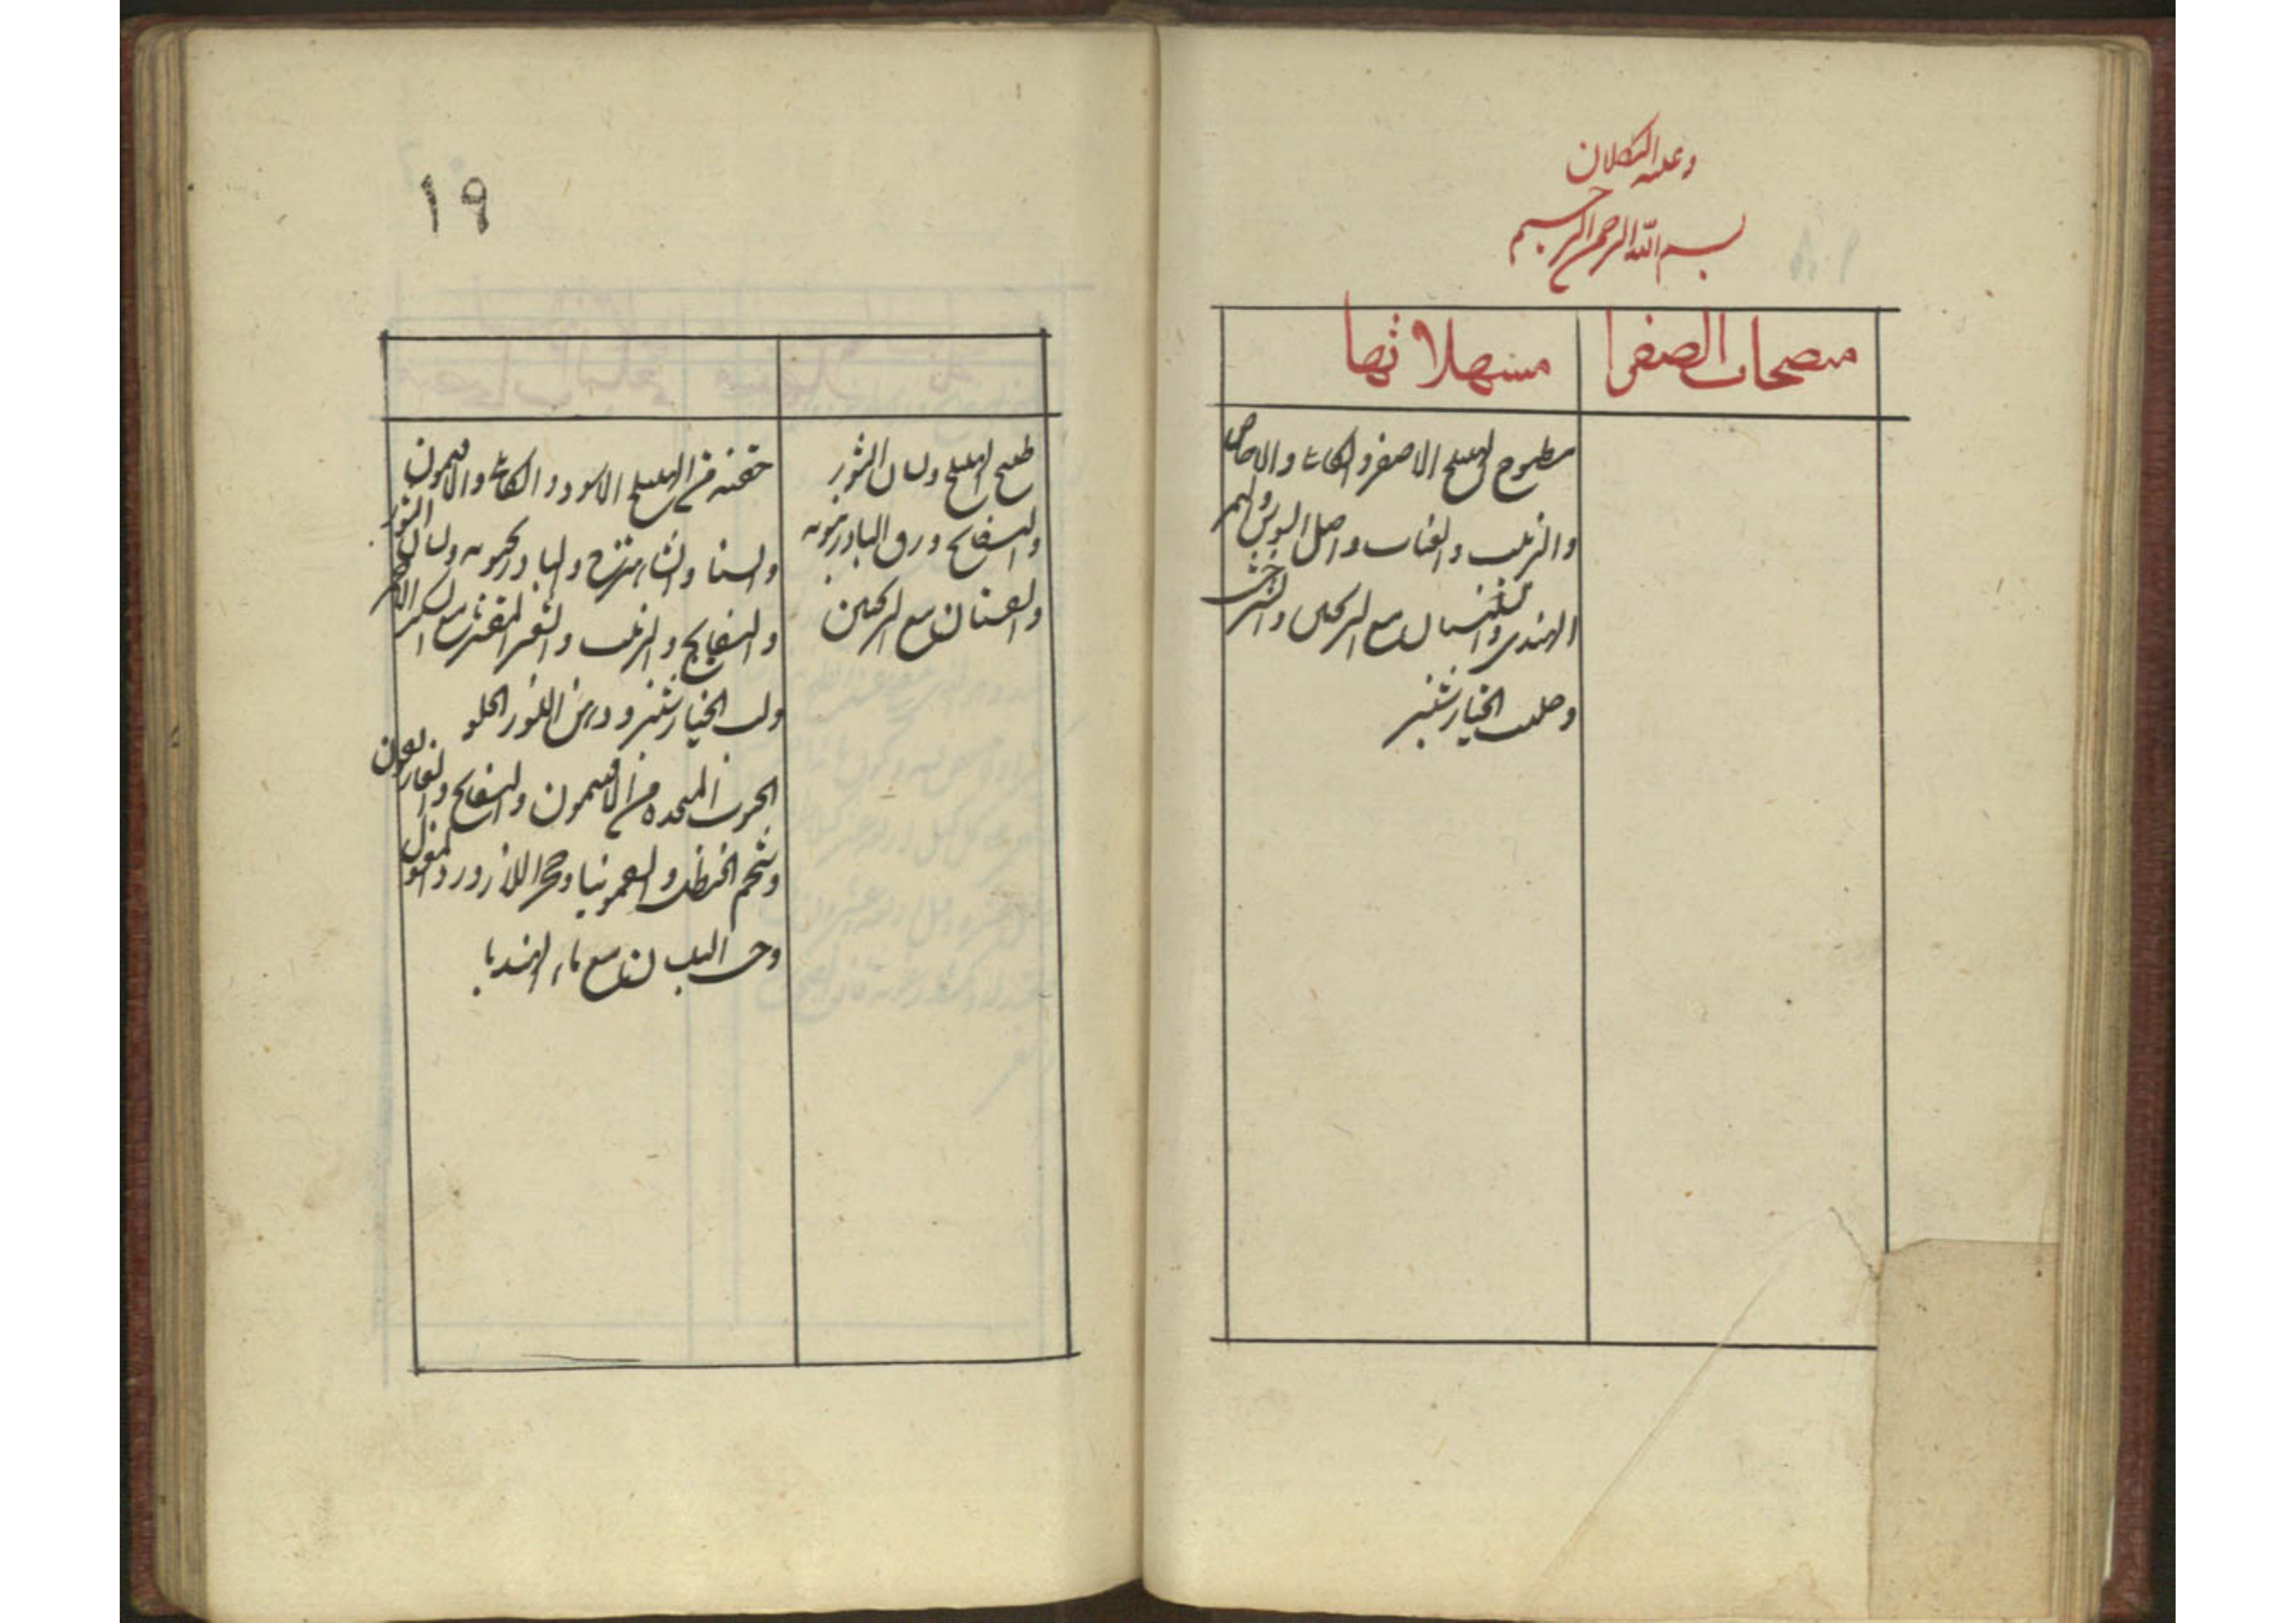 وعليه التكلان
بسم الله الرحمن الرحيم
منضجات الصفرا
مسهلاتها
مطبوخ الهليلج الاصفر و الكابلى والاجاص
والزبيب والعناب واصل السوس والتمر
الهندى مع الترنجبين والشيرخشت
وصلب الخيارشنبر
١٩
طبيخ الهليلج ولسان الثور
والبسفايج وورق البادرنجبويه
مع الترنجبين
حقنه من الهليلج الاسود و الكابلى والافتيمون
والسنا والشاهترج والبادرنجبويه ولسان الثور
والبسفايج والزبيب والشعير المقشر مع السكر الاحمر
ولب الخيارشنبر ودهن اللوز الحلو
الحبوب المتخذه من الافتيمون والبسفايج والغاريقون
وشحم الحنظل والسقمونيا وحجر اللازورد المغسول
مع ماء الهندبا